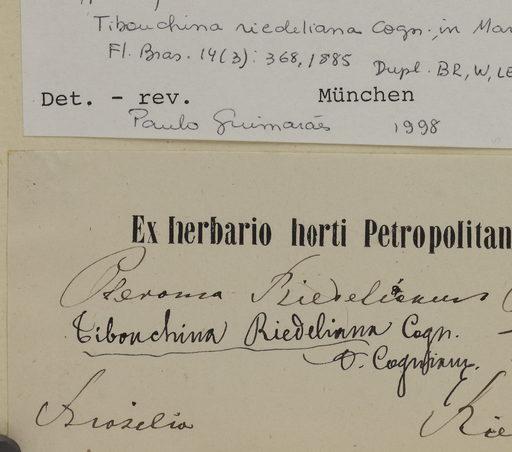 Tibouchina riedeliana Cogn., in Mar
Fl. Bras. 14(3): 368, 1885
Dupl. BR, W, LE
Det. - rev. München
Paulo Guimarães 1998
Ex herbario horti Petropolitan
Pleroma Riedelianum
Tibouchina Riedeliana Cogn.
D. Cogniaux.
Brasilia Rie